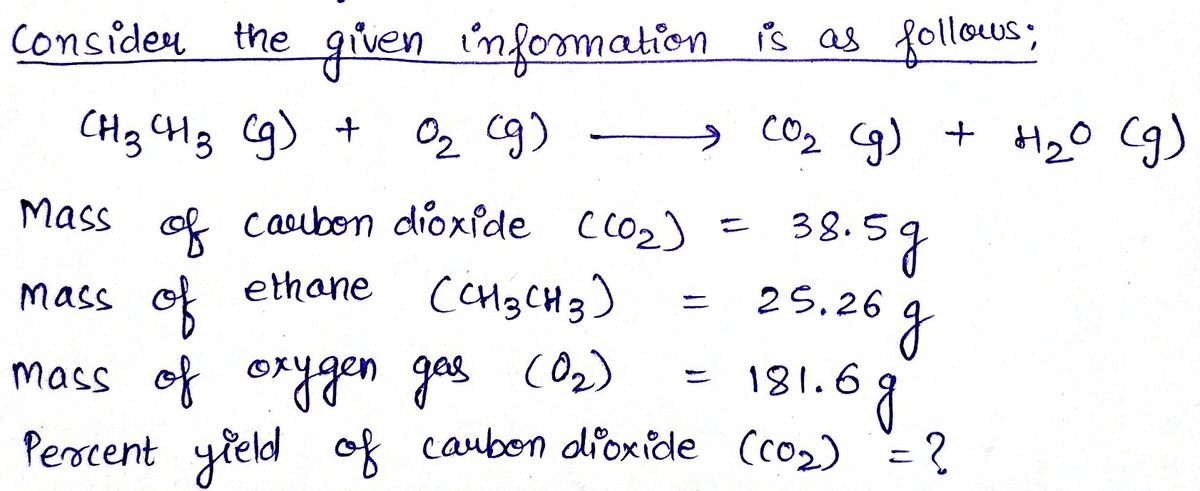 Consider the given information is as follows;
CH3CH3 (g) + O2 (g) ⟶ CO2 (g) + H2O (g)
Mass of carbon dioxide (CO2) = 38.5g
Mass of ethane (CH3CH3) = 25.26 g
Mass of oxygen gas (O2) = 181.6 g
Percent yield of carbon dioxide (CO2) = ?